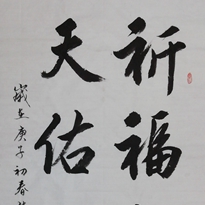 祈福
天佑
歲在庚子初春